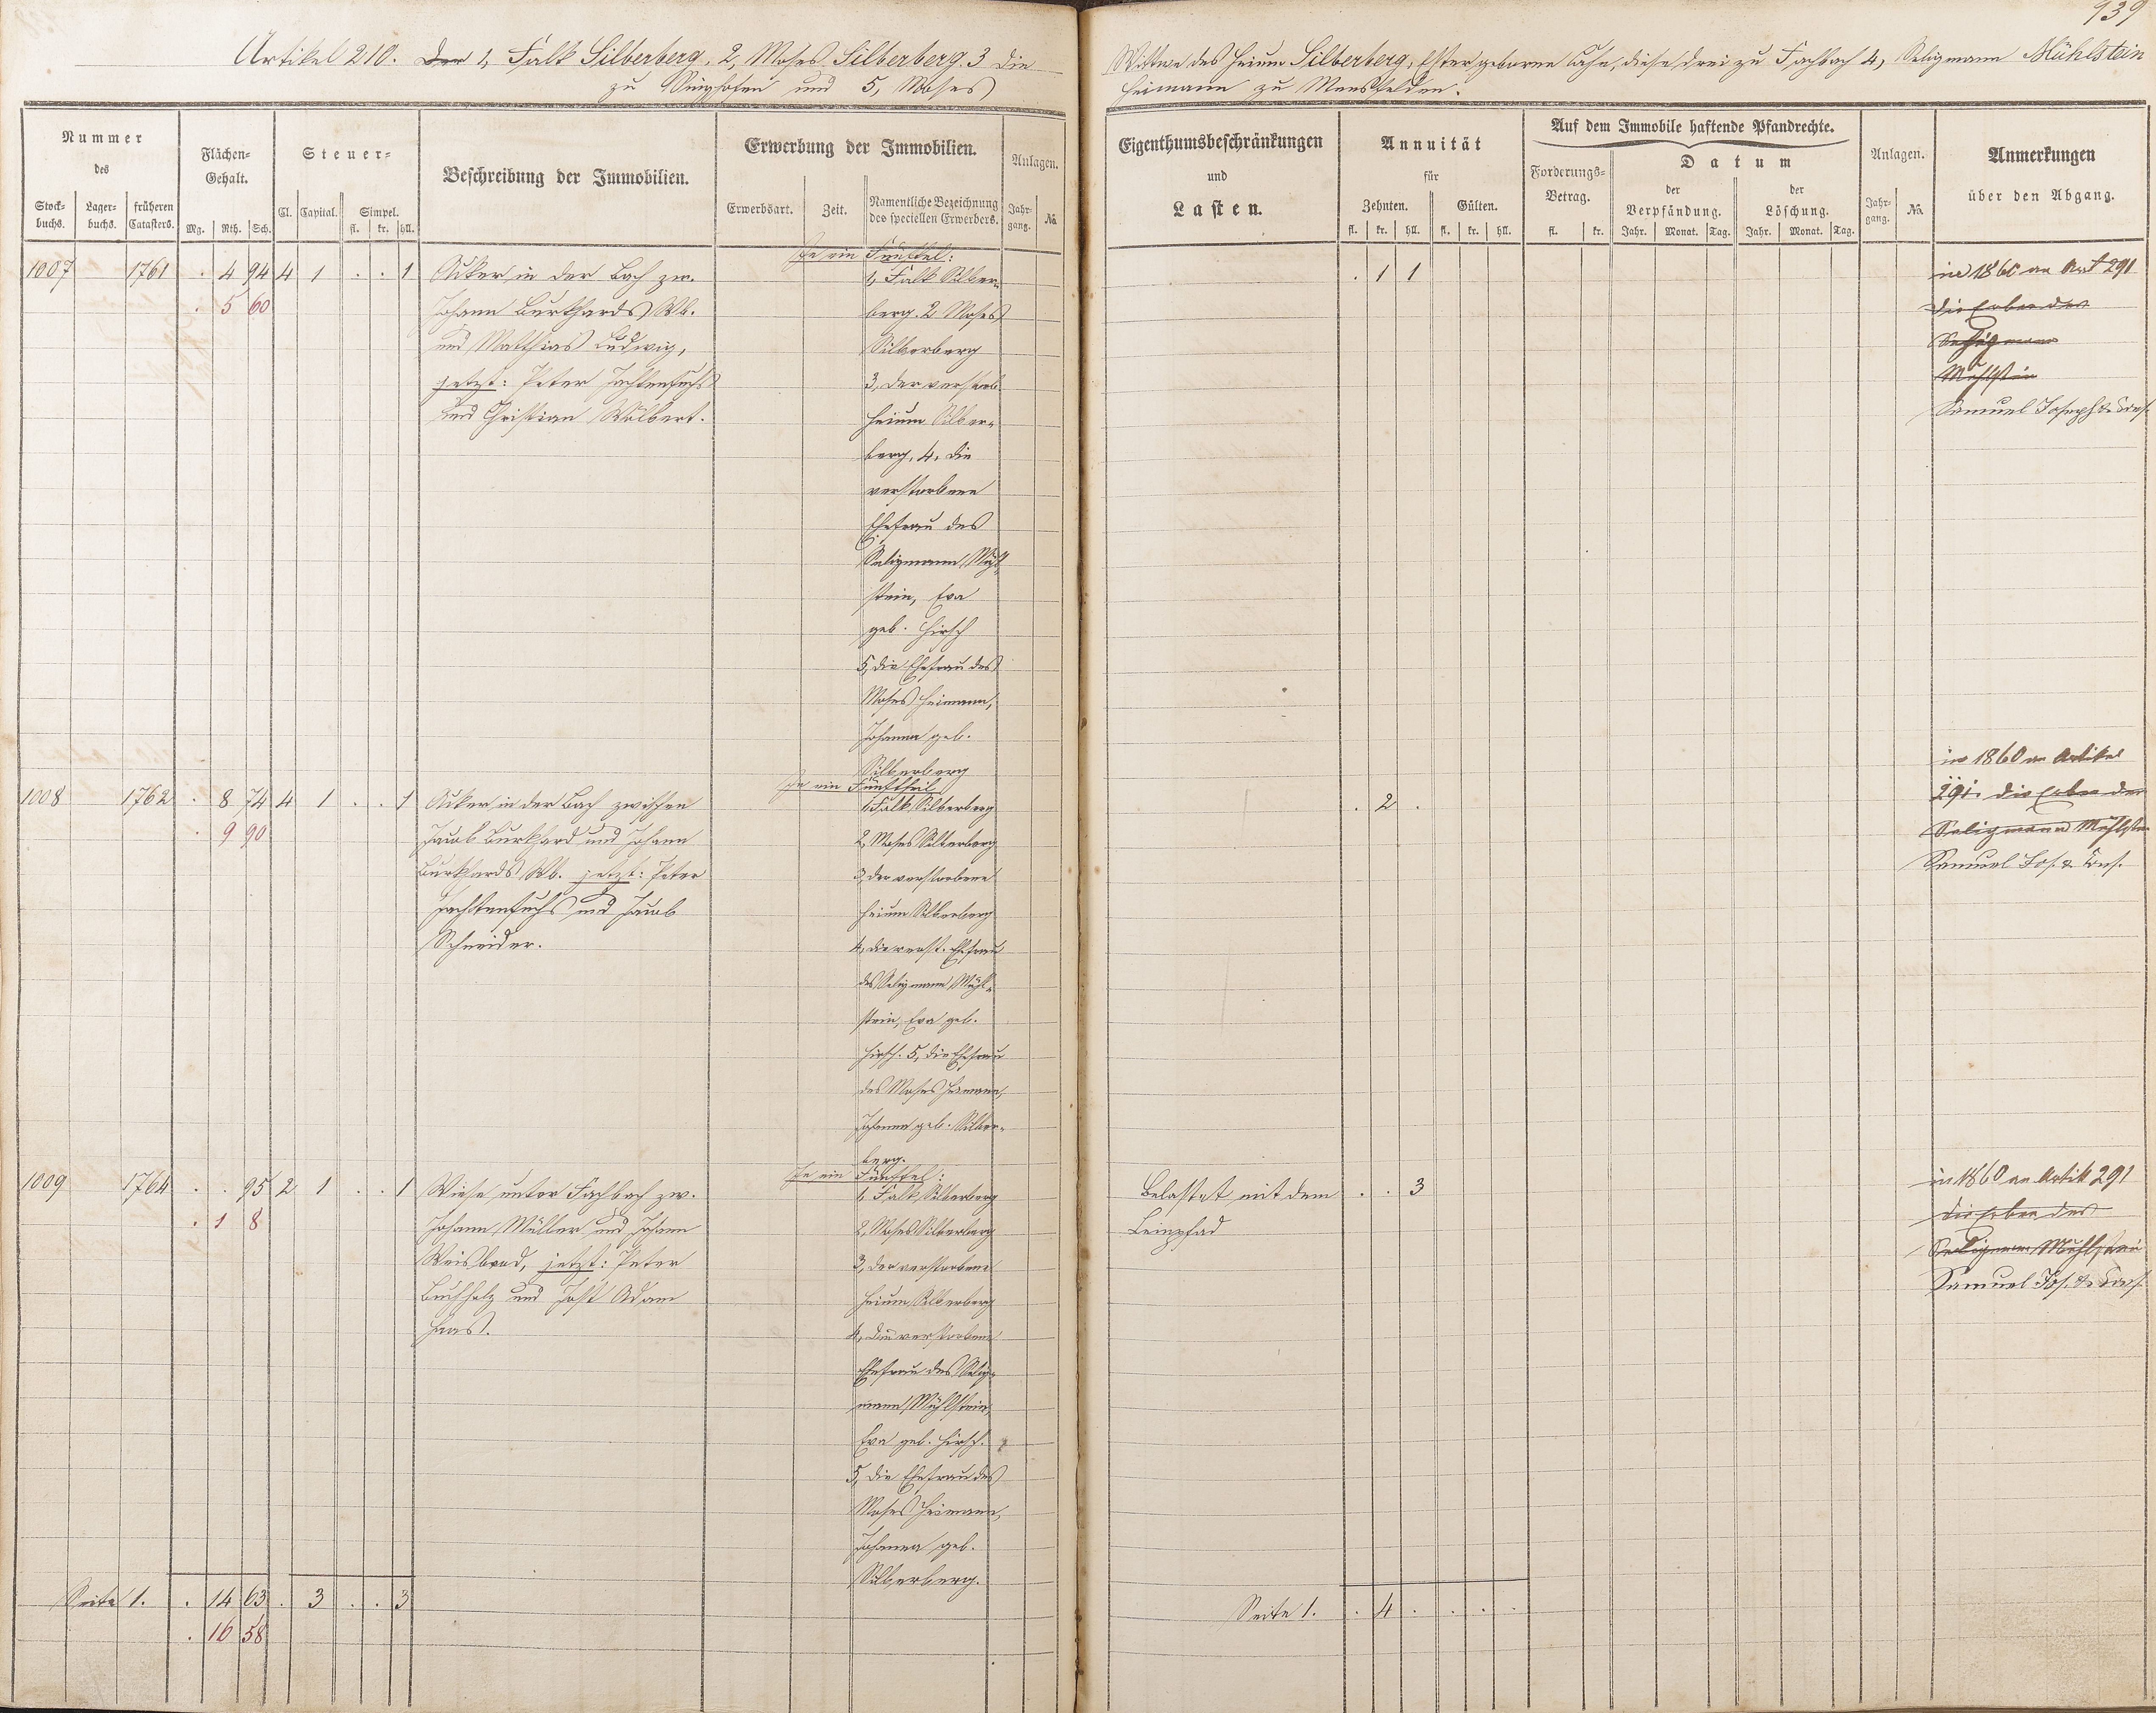 939
Artikel 210. Der 1, Falk Silberberg, 2, Moses Silberberg. 3 die Wittwe des Heium Silberberg, Ester geborene Cahn, diese drei zu Fachbach 4, Seligmann Mühlstein
zu Singhofen und 5, Moses Heimann zu Mensfelden.
Nummer
des
Stock-
buchs.
Lager-
buchs.
früheren
Catasters.
Flächen-
Gehalt.
Mg. Rth. Sch.
Steuer-
Cl. Capital. Simpel.
fl. kr. hll.
Beschreibung der Immobilien.
Erwerbung der Immobilien.
Erwerbsart. Zeit.
Namentliche Bezeichnung
des speciellen Erwerbers.
Anlagen.
Jahr-
gang.
No.
Eigenthumsbeschränkungen
und
Lasten.
Annuität
für
Zehnten. Gülten.
fl. kr. hll. fl. kr. hll.
Auf dem Immobile haftende Pfandrechte.
Forderungs-
Betrag.
fl. kr.
Datum
der
Verpfändung.
Jahr. Monat. Tag.
der
Löschung.
Jahr. Monat. Tag.
Anlagen.
Jahr-
gang.
No.
Anmerkungen
über den Abgang.
1007 1761 . 4 94 4 1 . . 1
. 5 60
Acker in der Bach zw.
Johann Burkhards Wb.
und Matthias Ludwig,
jetzt: Peter Fachtenfuchs
und Christian Wölbert.
Je ein Fünftel:
1, Falk Silber-
berg. 2 Moses
Silberberg
3, der verstorb.
Heium Silber-
berg, 4, die
verstorbene
Ehefrau des
Seligmann Mühl-
stein, Eva
geb. Hirsch
5, die Ehefrau des
Moses Heimann,
Johanna geb.
Silberberg
. 1 1
in 1860 an Art 291
die Erben des
Seligmann
Mühlstein
Samuel Joseph & Cons.
1008 1762 . 8 74 4 1 . . 1
. 9 90
Acker in der Bach zwischen
Jacob Burkhard und Johann
Burkhards Wb. jetzt: Peter
Fachtenfuchs und Jacob
Schneider.
Je ein Fünftheil
1, Falk Silberberg
2, Moses Silberberg
3, der verstorbene
Heium Silberberg
4, die verst. Ehefrau
des Seligmann Mühl-
stein, Eva geb.
Hirsch. 5, die Ehefrau
des Moses Heimann,
Johanna geb. Silber-
berg.
. 2 .
in 1860 an Artikel
291. die Erben des
Seligmann Mühlstein
Samuel Jos. & Cons.
1009 1764 . . 95 2 1 . . 1
. 1 8
Wiese unter Fachbach zw.
Johann Müller und Johann
Weisbrod, jetzt: Peter
Buchholz und Jost Adam
Haas.
Je ein Fünftel:
1, Falk Silberberg
2, Moses Silberberg
3, der verstorbene
Heium Silberberg
4, die verstorbene
Ehefrau des Selig-
mann Mühlstein,
Eva geb. Hirsch.
5, die Ehefrau des
Moses Heimann,
Johanna geb.
Silberberg.
Belastet mit dem
Leinpfad
. . 3
in 1860 an Artik 291
die Erben des
Seligmann Mühlstein
Samuel Jos. & Cons.
Seite 1. . 14 63 . 3 . . 3
. 16 58
Seite 1. . 4 . . . .